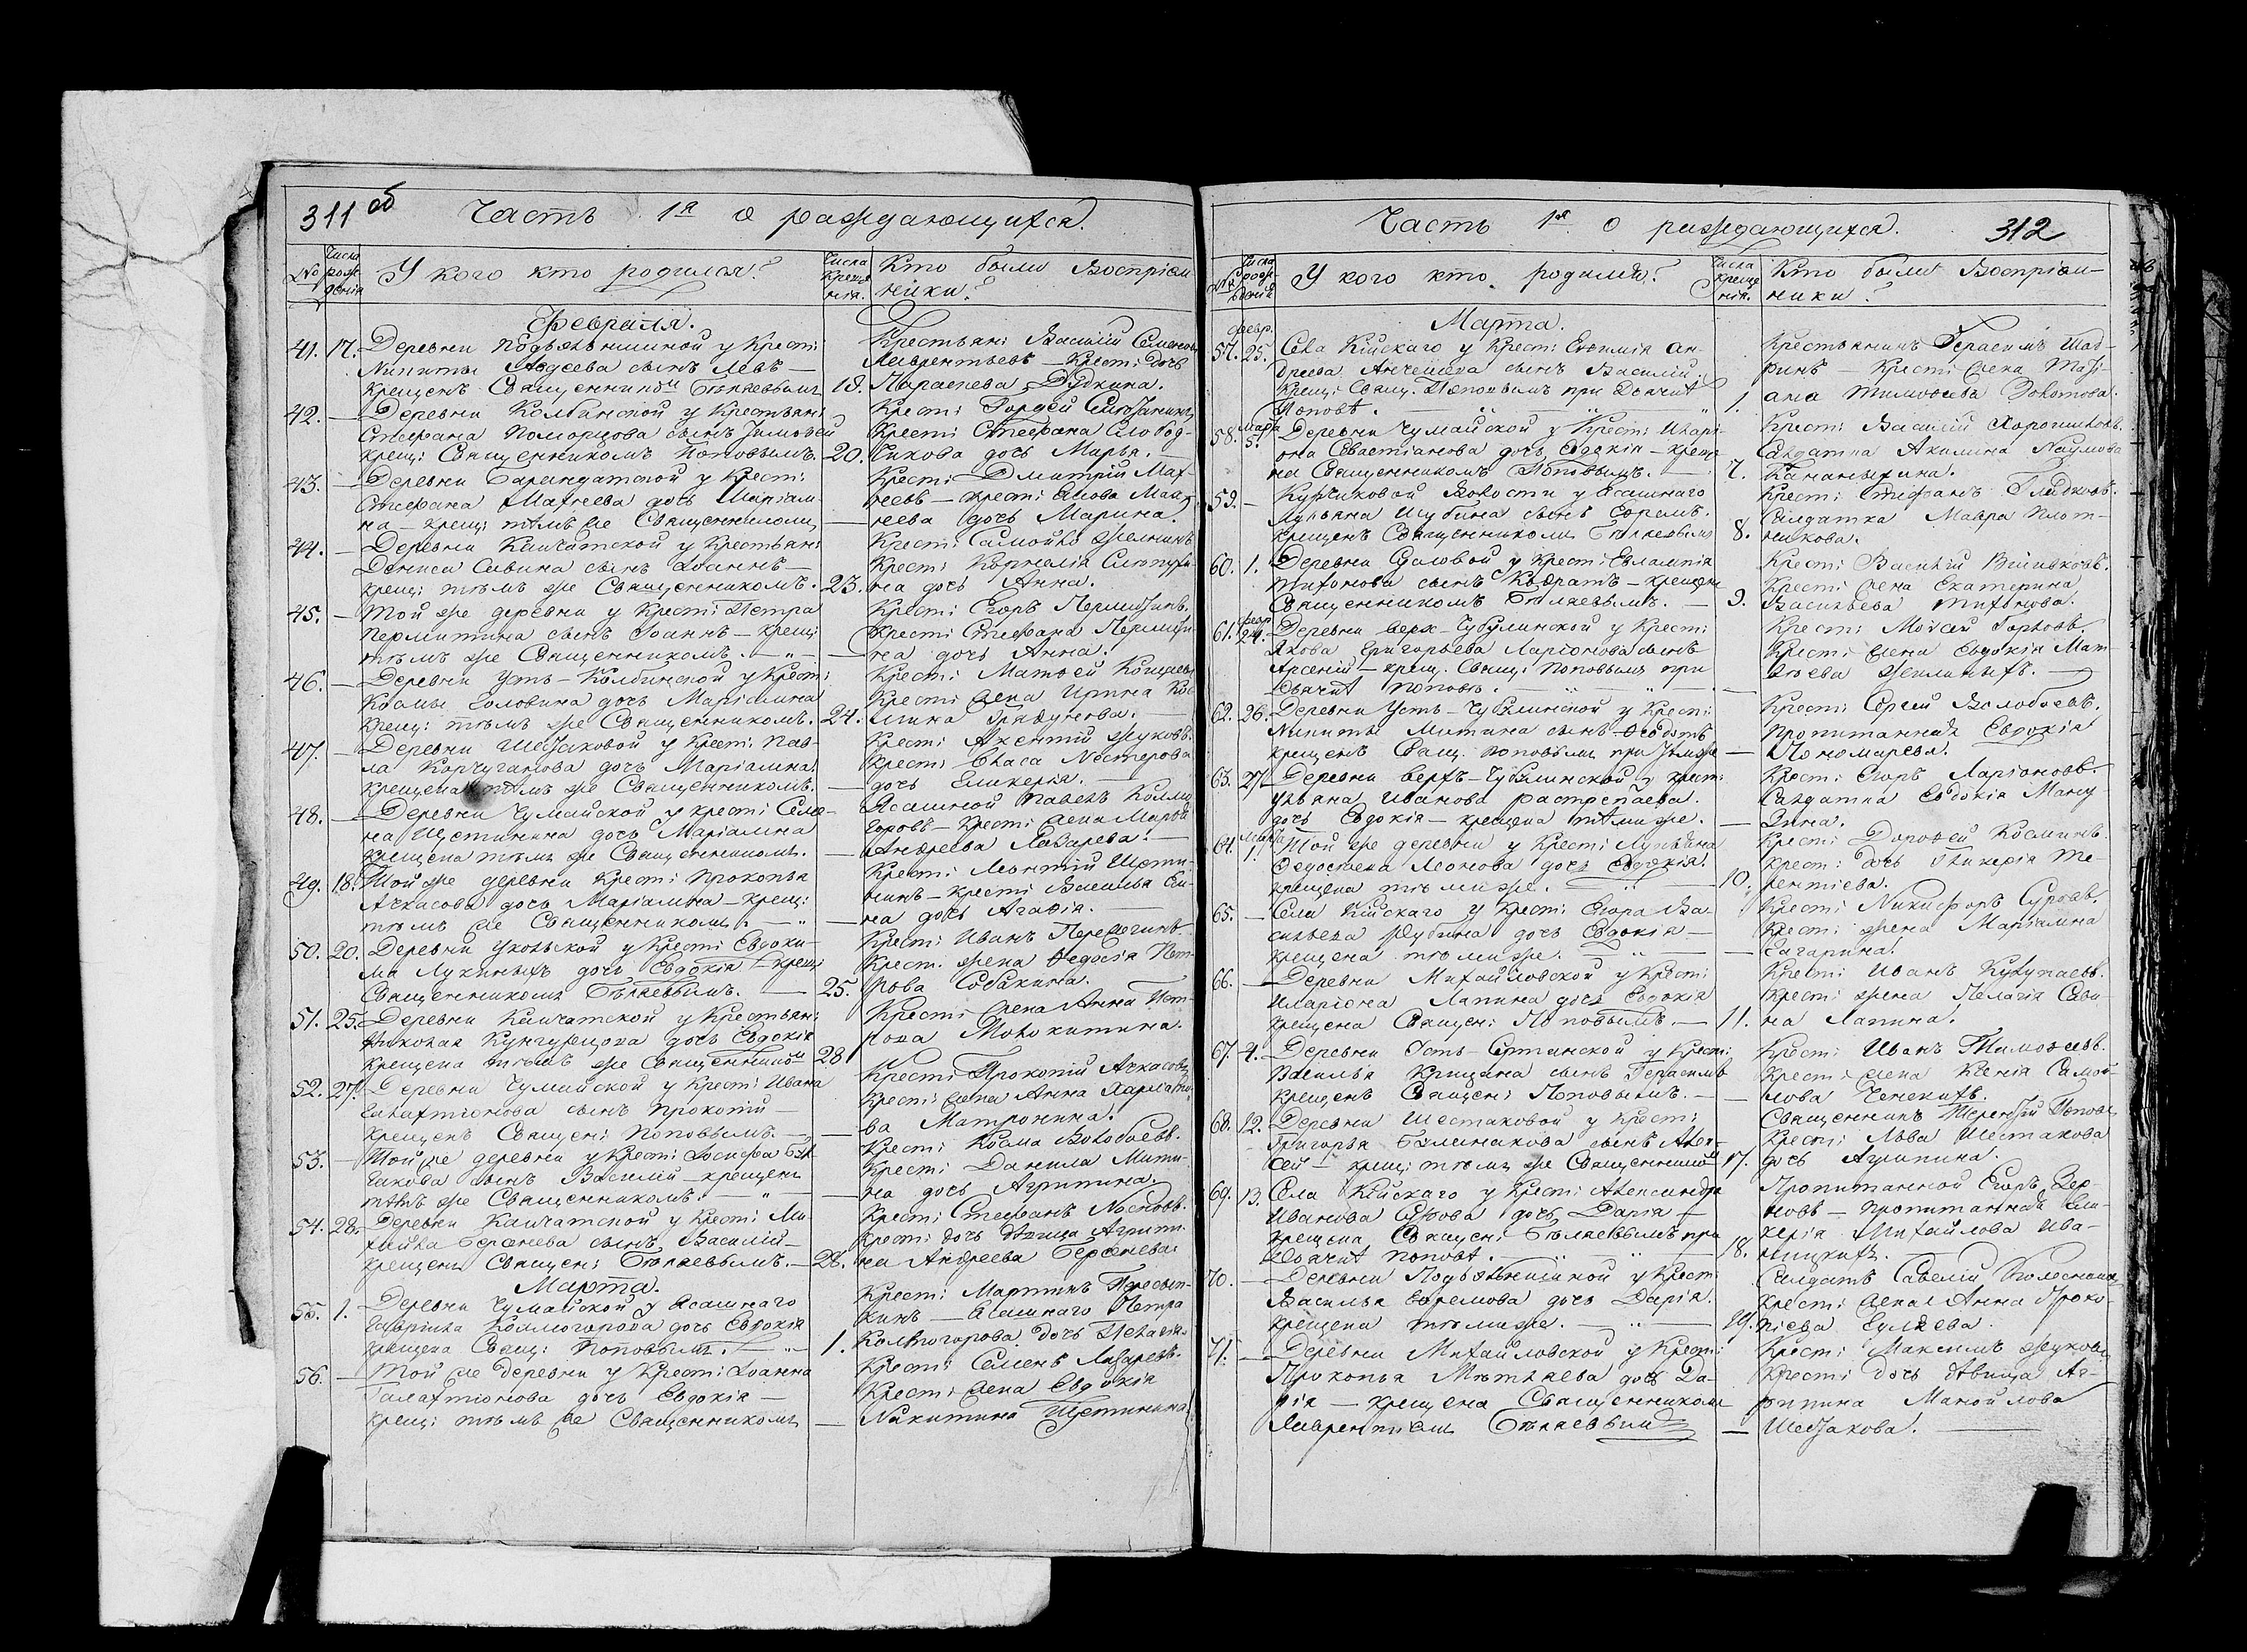 311 об Часть 1я о раждающихся.
№ Числа рождения У кого кто родился? Числа крещения. Кто были Восприемники?
Февраля.
41. 17. Деревни Подъельнишной у Крест:
Никиты Авдеева сынъ Левъ —
крещенъ Священником Беляевымъ 19.
Крестьян: Василій Семенов
Лаврентьевъ — Крест: дочь
Параскева Дудкина.
42. — Деревни Колбинской у Крестьян:
Стефана Поморцова сынъ Тимофей
крещ: Священникомъ Поповымъ. 20.
Крест: Гордей
Крест: Стефана Слобод-
чикова дочь Марья.
43. — Деревни Барандатской у Крест:
Стефана Махнева дочь Маріам-
на — крещ: темъ же Священником —
Крест: Дмитрий Мах-
невъ — крест: Мах-
нева дочь Марина.
44. — Деревни Камчатской у Крестьян:
Дениса Савина сынъ Іоаннъ —
крещ: темъ же Священникомъ. 23.
Крест: Самойло
Крест: Корнелія
на дочь Анна.
45. — Той же деревни у Крест: Петра
Пермитина сынъ Іоаннъ — крещ:
темъ же Священникомъ. — " — —
Крест: Егоръ Пермитинъ.
Крест: Стефана Пермити-
на дочь Анна.
46. — Деревни Усть-Колбинской у Крест:
Космы Головина дочь Маріамна
крещ: темъ же Священникомъ. 24.
Крест: Матвей
Крест: жена Ирина
47. — Деревни Шестаковой у Крест: Пав-
ла Корчуганова дочь Маріамна
крещена темъ же Священникомъ. —
Крест: Жуковъ.
Крест: Власа Нестерова
дочь Гликерія. —
48. — Деревни Чумайской у Крест: Семе-
на Щетинина дочь Маріамна
крещена темъ же Священником. —
Ясашной Павелъ Колмо
горовъ — Крест: жена Марья
Андреева Лазарева. —
49. 18. Той же деревни Крест: Прокопья
Ачкасова дочь Маріамна — крещ:
темъ же Священником. — " — —
Крест: Леонтій Щети-
нинъ — Крест: Василья
на дочь Агафія.
50. 20. Деревни Укольской у Крест: Евдоки-
ма Лукиныхъ дочь Евдокія — крещ:
Священником Беляевымъ. — 25.
Крест: Иванъ
Крест. жена Федосія Пет-
рова Собакина.
51. 25. Деревни Камчатской у Крестьян:
Николая Кунгурцова дочь Евдокія
крещена темъ же Священником 28
Крест: жена Анна Пет-
рова Молокитина.
52. 27. Деревни Чумайской у Крест: Ивана
Галахтионова сынъ Прокопій —
крещенъ Священ: Поповымъ. — —
Крест: Прокопій Ачкасовъ
Крест: жена Анна Харлампи-
ва Матронина.
53. — Той же деревни у Крест: Іосифа
сынъ Василій — крещенъ
темъ же Священникомъ. — " — —
Крест: Косма Волобоевъ.
Крест: Данила Мити-
на дочь Агрипина.
54. 28. Деревни Камчатской у Крест: Ми-
хайла Берсенева сынъ Василій —
крещенъ Священ: Беляевымъ. — 28.
Крест: Стефанъ Носковъ.
Крест: дочь девица Агрипи-
на Андреева Берсенева.
Марта.
55. 1. Деревни Чумайской у Ясашнаго
Гаврила Колмогорова дочь Евдокія
крещена Свящ: Поповымъ. — " — 1.
Крест: Мартинъ
кинъ — Ясашнаго Петра
Колмогорова дочь Пелагія.
56. — Той же деревни у Крест: Іоанна
Галахтионова дочь Евдокія —
крещ: темъ же Священникомъ —
Крест: Семенъ Лазаревъ.
Крест: жена Евдокія
Никитина Щетинина
Часть 1я о раждающихся. 312
№ Числа рождения У кого кто родился? Числа крещения. Кто были Восприемники?
Марта.
57. февр. 25. Села Кійскаго у Крест: Евфимія Ан-
дреева сынъ Василій.
крещ: Свящ. Поповымъ при Дьячке
Попове. — " — " 1.
Крестьянинъ Герасимъ Шад-
ринъ — Крест: жена Тать-
ана Тимофеева Золотова.
58. Марта 5. Деревни Чумайской у Крест: Илари-
она Севастіанова дочь Евдокія — креще-
на Священникомъ Поповымъ. — 7.
Крест: Василій Хорошиловъ.
Солдатка Акилина Наумова
59. — Волости у Ясашнаго
Лукьяна Шубина сынъ Ефремъ.
крещенъ Священником Беляевымъ 8.
Крест: Стефанъ Гладковъ.
Солдатка Мавра Плот-
никова.
60. 1. Деревни Едловой у Крест: Евлампія
Тихонова сынъ Кодратъ — крещенъ
Священникомъ Беляевымъ. — 9.
Крест: Василій
Крест: жена Екатерина
Васильева Тихонова.
61. февр. 24. Деревни Верх-Чубулинской у Крест:
Якова Григорьева Ларіонова сынъ
Арсеній — крещ. Свящ: Поповымъ при
Дьячке Попове. — " — " — —
Крест: Мойсей Горховъ.
Крест: жена Евдокія Мат-
веева
62. 26. Деревни Усть-Чубулинской у Крест:
Никиты Митина сынъ — Феодотъ
крещенъ Свящ. Поповым при —
Крест: Сергей Волобоевъ.
Пропитанная Евдокія
Пономарева.
63. 27. Деревни Верхъ-Чубулинской у крест:
Ульяна Иванова Растрепаева.
дочь Евдокія — крещена темже. —
Крест: Егоръ Ларіоновъ.
Солдатка Евдокія
64. Марта 1. Той же деревни у Крест: Лукьяна
Леонова дочь Евдокія.
крещена темже. — " — 10.
Крест: Дорофей Косминъ.
Крест: дочь Гликерія Те-
рентіева.
65. — Села Кійскаго у Крест: Егора Ва-
сильева Юдина дочь Евдокія —
крещена темже. — " — —
Крест: Никифоръ Суровъ.
Крест: жена Маріамна
Гагарина.
66. — Деревни Михайловской у Крест:
Иларіона Лапина дочь Евдокія
крещена Священ: Поповымъ. — 11.
Крест: Иванъ
Крест: жена Пелагія Сави-
на Лапина.
67. 4. Деревни Усть-Сертинской у Крест:
Василья сынъ Герасимъ
крещенъ Священ: Поповымъ. — —
Крест: Иванъ Тимофеевъ.
Крест: жена Ксенія Самой-
лова
68. 12. Деревни Шестаковой у Крест:
Григорья сынъ Алек-
сей — крещ: темъ же Священником 17.
Священникъ Терентій Поповъ
Крест: Льва Шестакова
дочь Агрипина.
69. 13. Села Кійскаго у Крест: Александра
Иванова дочь Дарія —
крещена Священ: Беляевымъ при
Дьячке Попове. — " — " 18.
Пропитанной Егоръ Зер-
новъ — пропитанной Гли-
керія Михайлова Ива-
ницкихъ.
70. — Деревни Подъельнишной у Крест:
Василья Ефремова дочь Дарія.
крещена темже. — " — 19.
Солдатъ Савелій
Крест: жена Анна Проко-
піева Гуляева.
71. — Деревни Михайловской у Крест:
Прокопья Метляева дочь Да-
рія — крещена Священником
Лаврентіем Беляевым —
Крест: Максимъ Жуковъ
Крест: дочь девица Аг-
рипина Манойлова
Шестакова. —